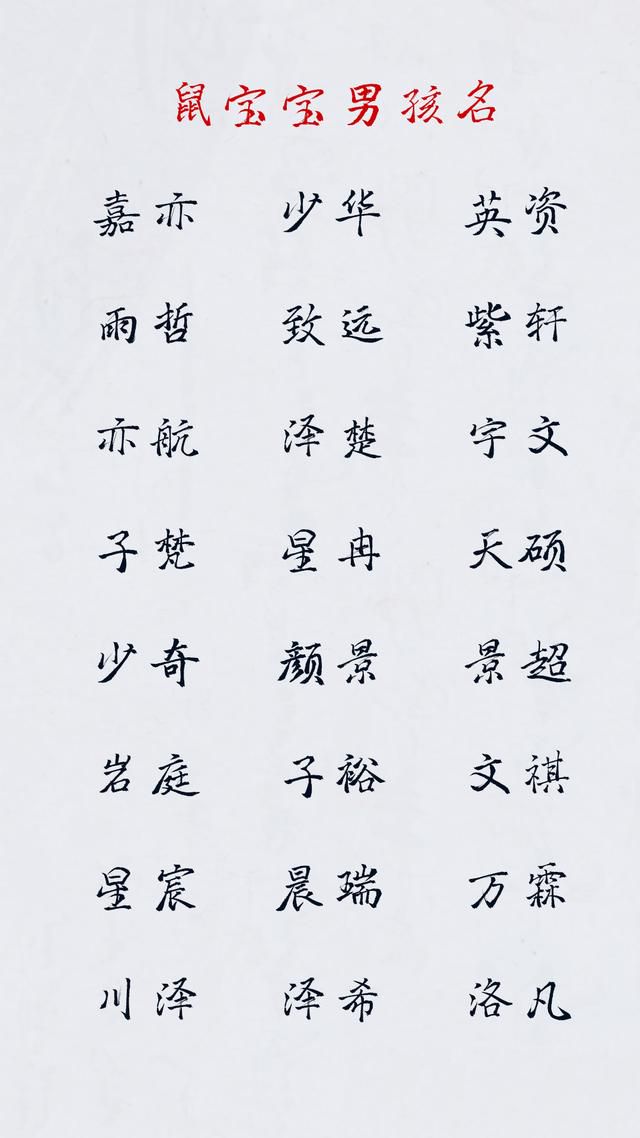 鼠宝宝男孩名
嘉亦 少华 英资
雨哲 致远 紫轩
亦航 泽楚 宇文
子梵 星冉 天硕
少奇 颜景 景超
岩庭 子裕 文祺
星宸 晨瑞 万霖
川泽 泽希 洛凡